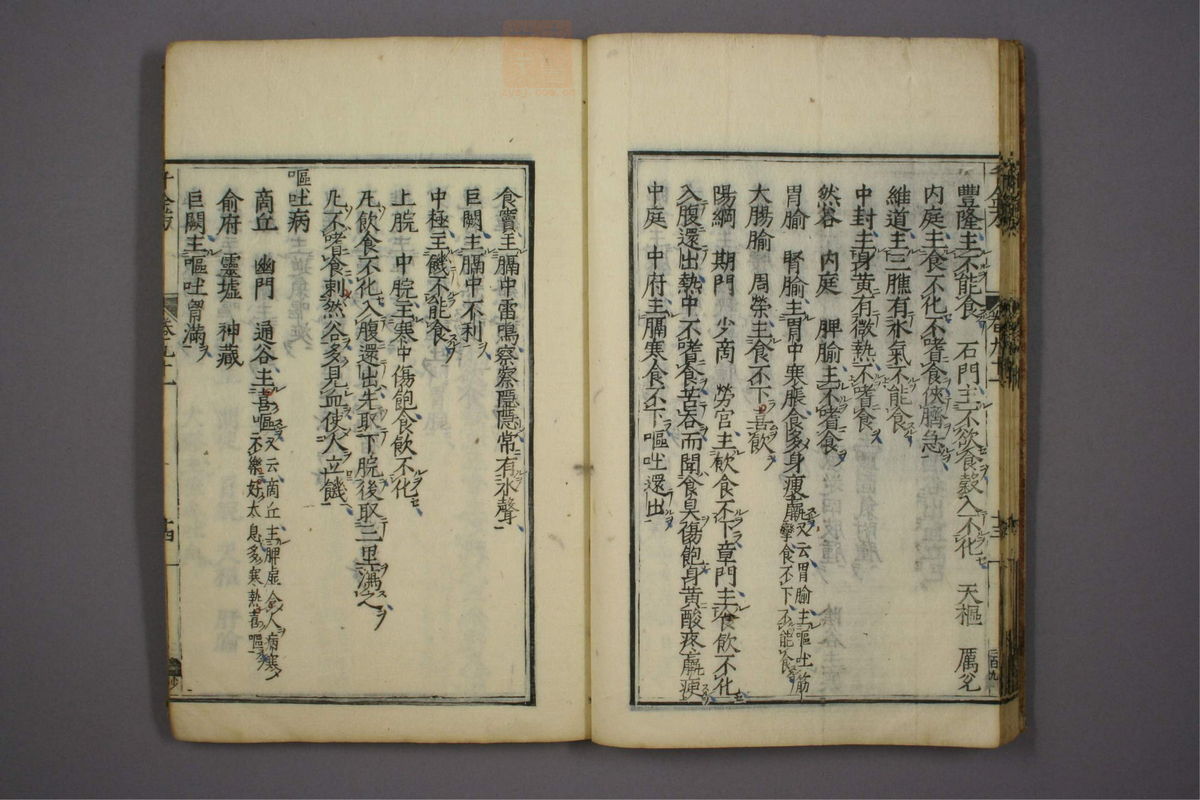 豐隆主不能食 石門主不欲食穀入不化 天樞 厲兌
內庭主食不化不嗜食俠臍急
維道主三膲有水氣不能食
中封主身黃有微熱不嗜食
然谷 內庭 脾腧主不嗜食
胃腧 腎腧主胃中寒脹食多身痩羸又云胃腧主嘔吐筋
攣食不下不能食
大腸腧 周榮主食不下喜飲
陽綱 期門 少商 勞宮主飲食不下章門主食飲不化
入腹還出熱中不嗜食苦吞而聞食臭傷飽身黃酸疼羸痩
中庭 中府主膈寒食不下嘔吐還出
食竇主膈中雷鳴察察隱隱常有水聲
巨闕主膈中不利
中極主饑不能食
上脘 中脘主寒中傷飽食飲不化
凡飲食不化入腹還出先取下脘後取三里瀉之
凡不嗜食刺然谷多見血使人立饑
嘔吐病
商丘 幽門 通谷主喜嘔又云商丘主脾虛令人病寒
不樂好太息多寒熱喜嘔
俞府 靈墟 神藏
巨闕主嘔吐胷滿